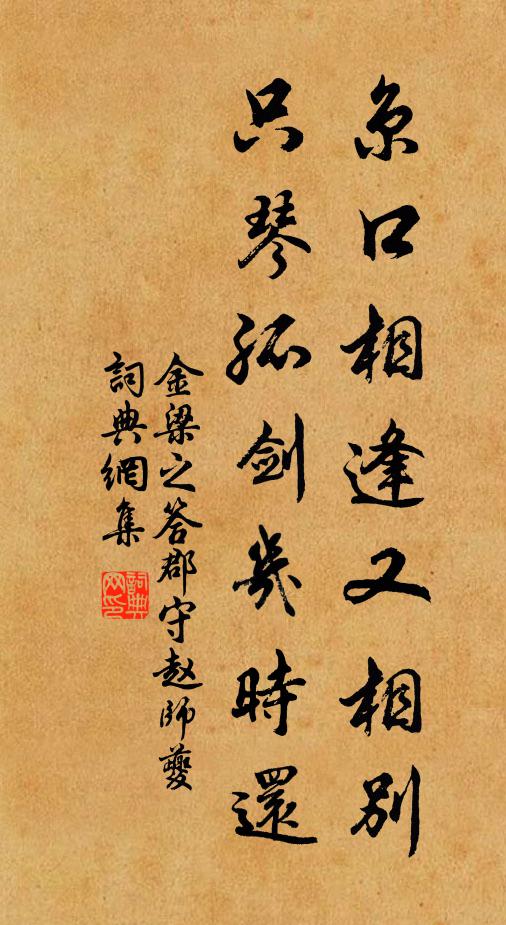 京口相逢又相別
只琴孤劍幾時還
金梁之答郡守赵師夔
詞典網集
詞典网印